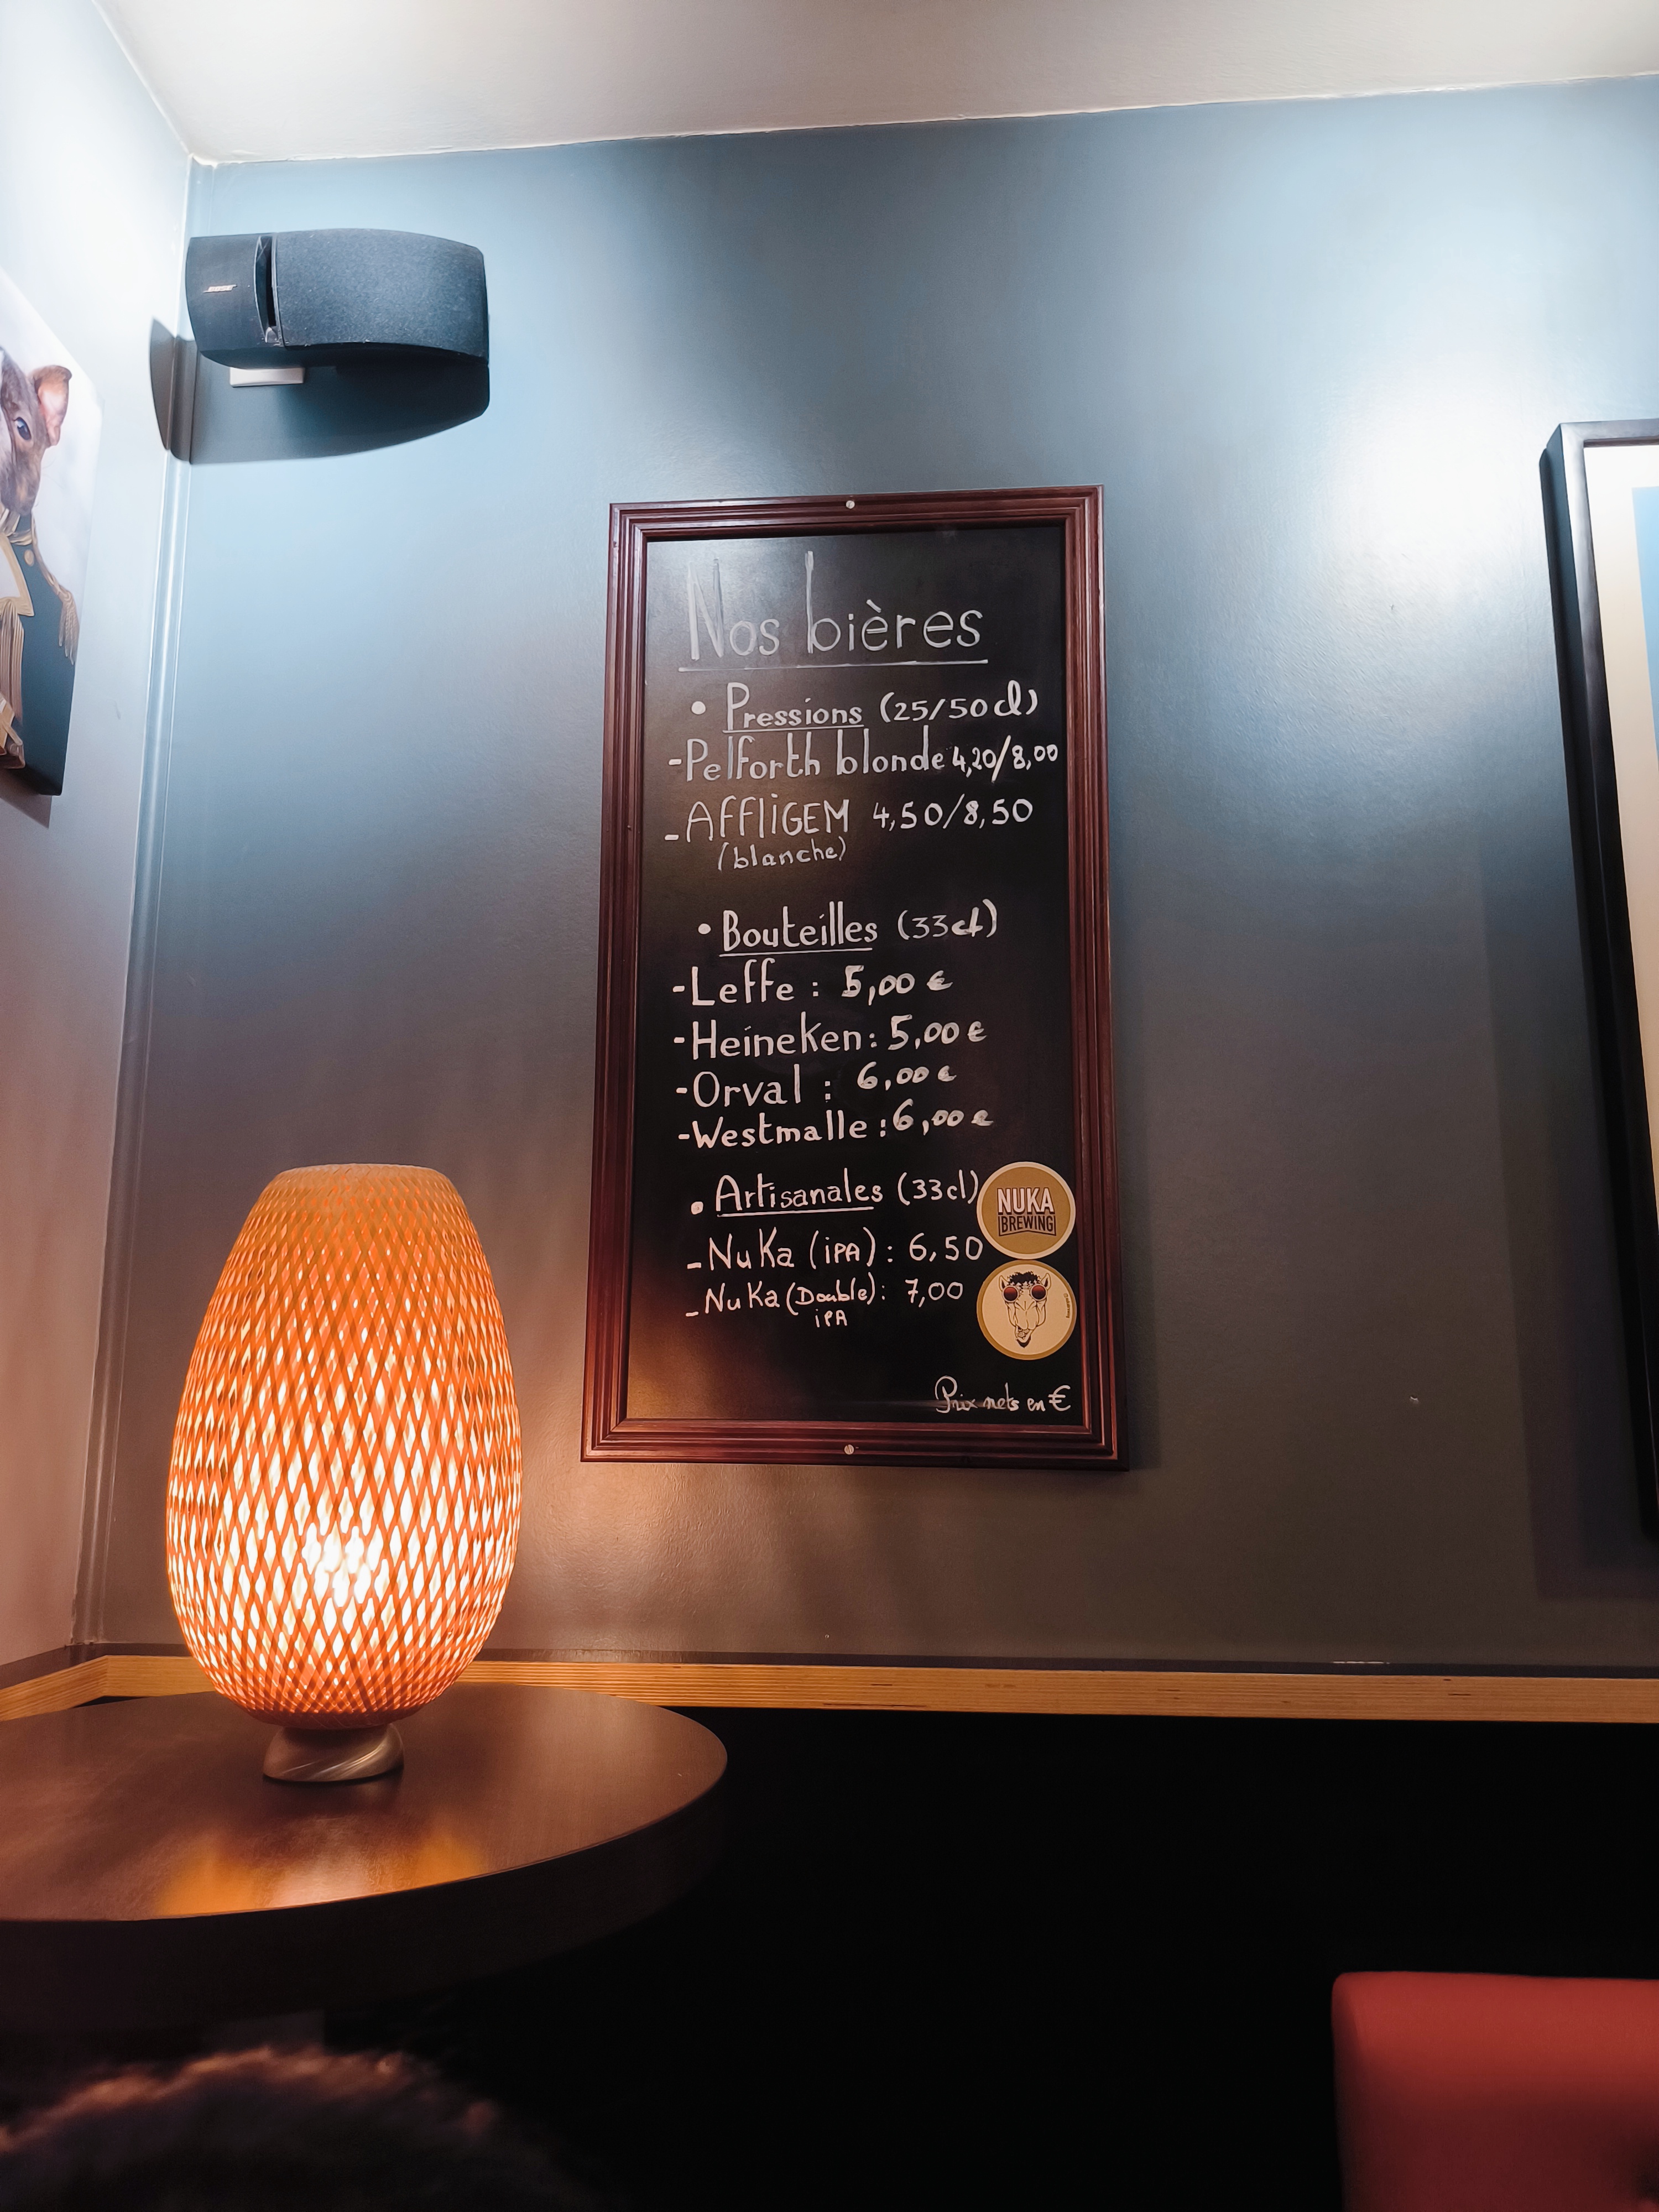 BOSE
Nos bières
• Pressions (25/50cl)
-Pelforth blonde 4,20/8,00
-AFFLiGEM 4,50/8,50
(blanche)
• Bouteilles (33cl)
-Leffe : 5,00 €
-Heineken : 5,00 €
-Orval : 6,00 €
-Westmalle : 6,00 €
• Artisanales (33cl)
NUKA
BREWING
-NuKa (iPA) : 6,50
-NuKa (Double) : 7,00
iPA
Prix nets en €